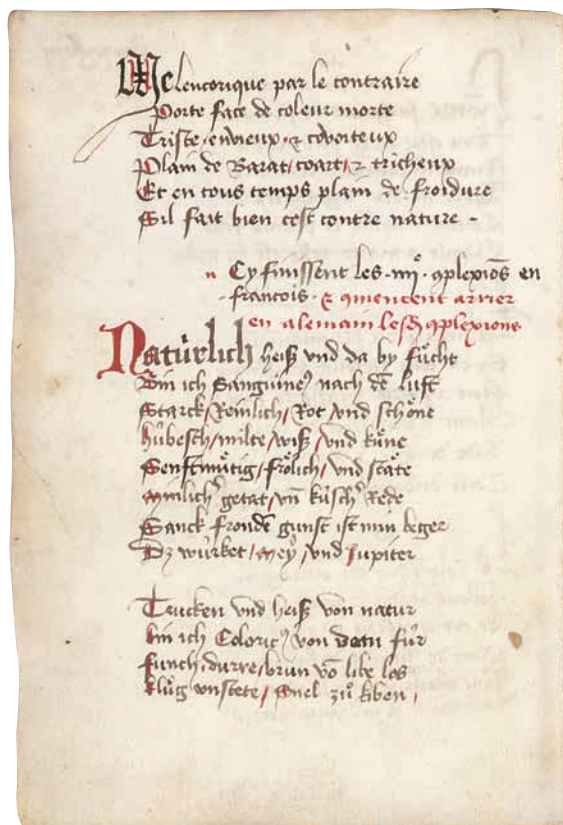 Melencorique par le contraire
Porte face de coleur morte
Triste / envieux / ⁊ couoiteux
Plain de Barat / coart / ⁊ tricheux
Et en tous temps plain de froidure
Sil fait bien cest contre nature -
Cy finissent les .iiijº. ꝯplexiōs en
francois . ⁊ ꝯmencent arrier
en alemain lesd̃ ꝯplexions
Natúrlich heiß vnd da by fúcht
Bin ich Sangúineꝰ nach dē luft
Starck / Reinlich / Rot vnd schöne
húbesch / milte / wiß / vnd kúne
Senftmútig / frölich / vnd stäte
getat / vn̄ kúschᵉ Rede
Sanck frondē gunst ist min beger
Dz wúrket / Meÿ / vnd Jupiter
Trucken vnd heiß von natur
bin ich Coloricꝰ von fúr
durre / brun vō libe los
klůg vnstete / Snel zů